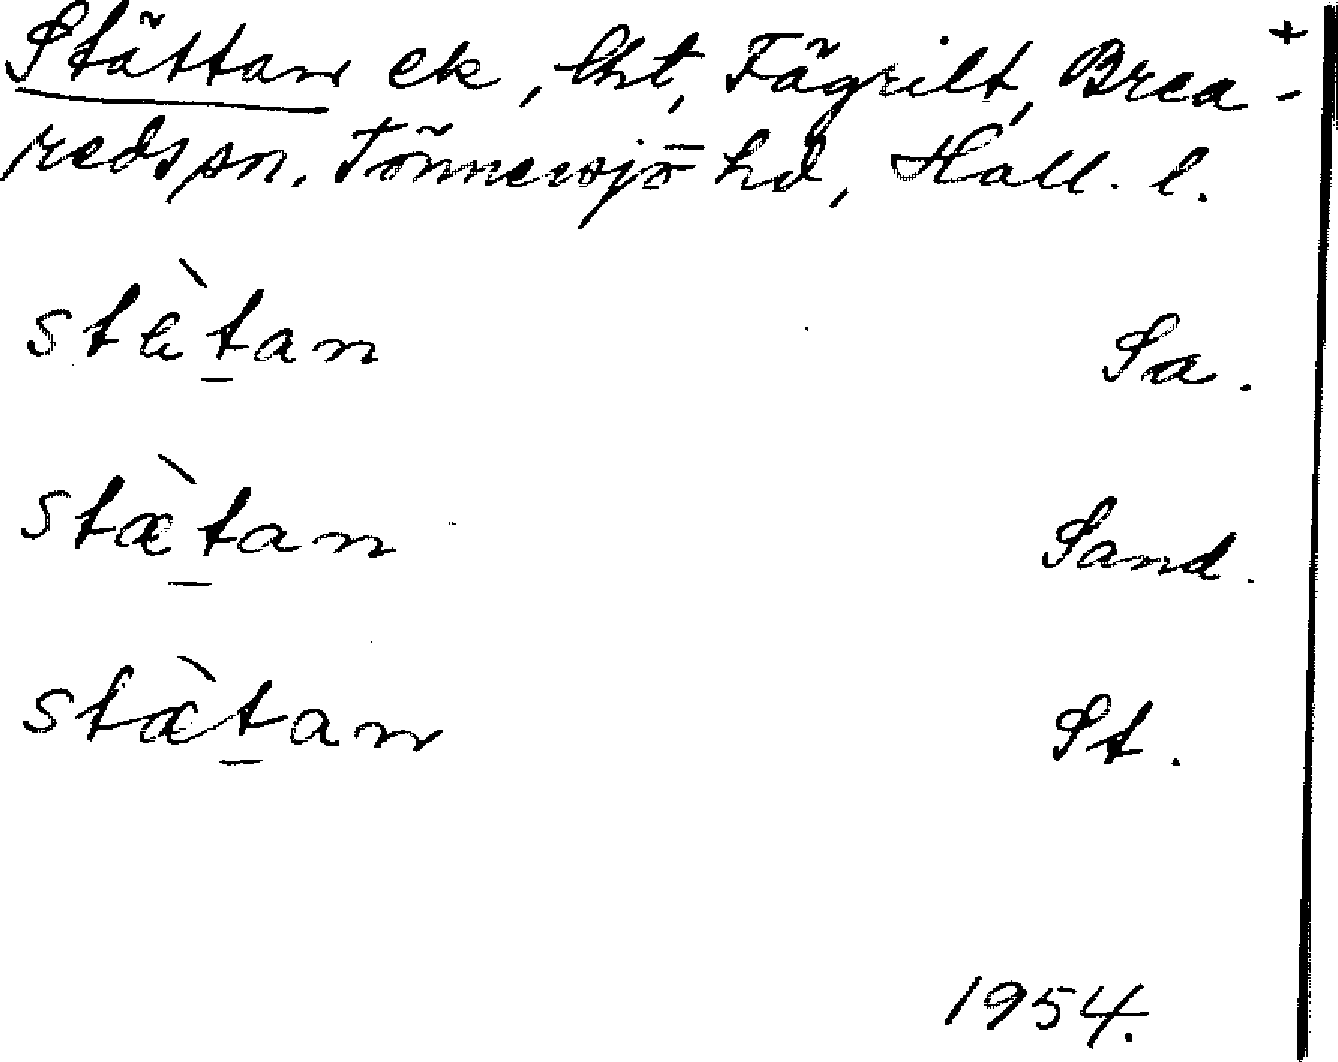 Stättan ek, lht, Fägrilt, Brea- +
redspn. Tönnersjö hd, Hall. l.
stètan Sa.
stæ̀tan Sand.
stætan St.
1954.